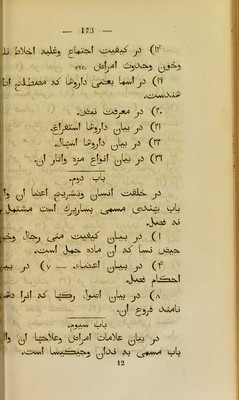 — 173 —
۱۸) در کیفیت اجتماع وغلبه اخلاط
وخون وحدوث امراض
۱۹) در اسما بعضی داروها که مصطلح
هندست.
۲۰) در معرفت نبض.
۲۱) در بیان داروها استفراغ.
۲۲) در بیان داروها اسهال.
۲۳) در بیان انواع مزه واثار ان.
باب دوم.
در خلقت انسان وتشریح اعضا ان
باب بهندی مسمی بساریرك است مشتمل
نه فصل.
۱) در بیان کیفیت منی رجال
حیض نسا که ان ماده حمل است.
در بیان اعضاء. — ۷) در
احکام فصد.
۸) در بیان اصول رگها که انرا
نامند فروع ان.
باب سیوم.
در بیان علامات امراض وعلاجها ان
باب مسمی به ندان وجیکیسا است.
12